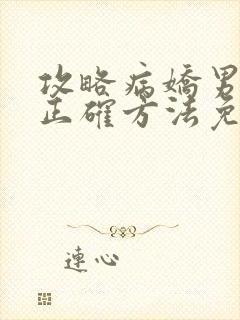 攻略病嬌男
正確方法免
連心